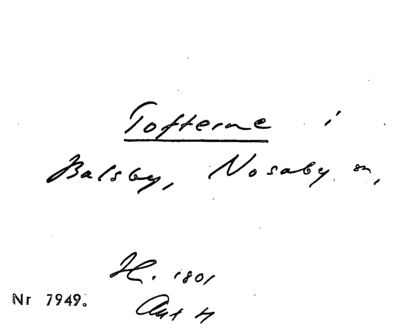 Tofterne i
Balsby, Nosaby sn,
H. 1801
Akt H
Nr 7949.